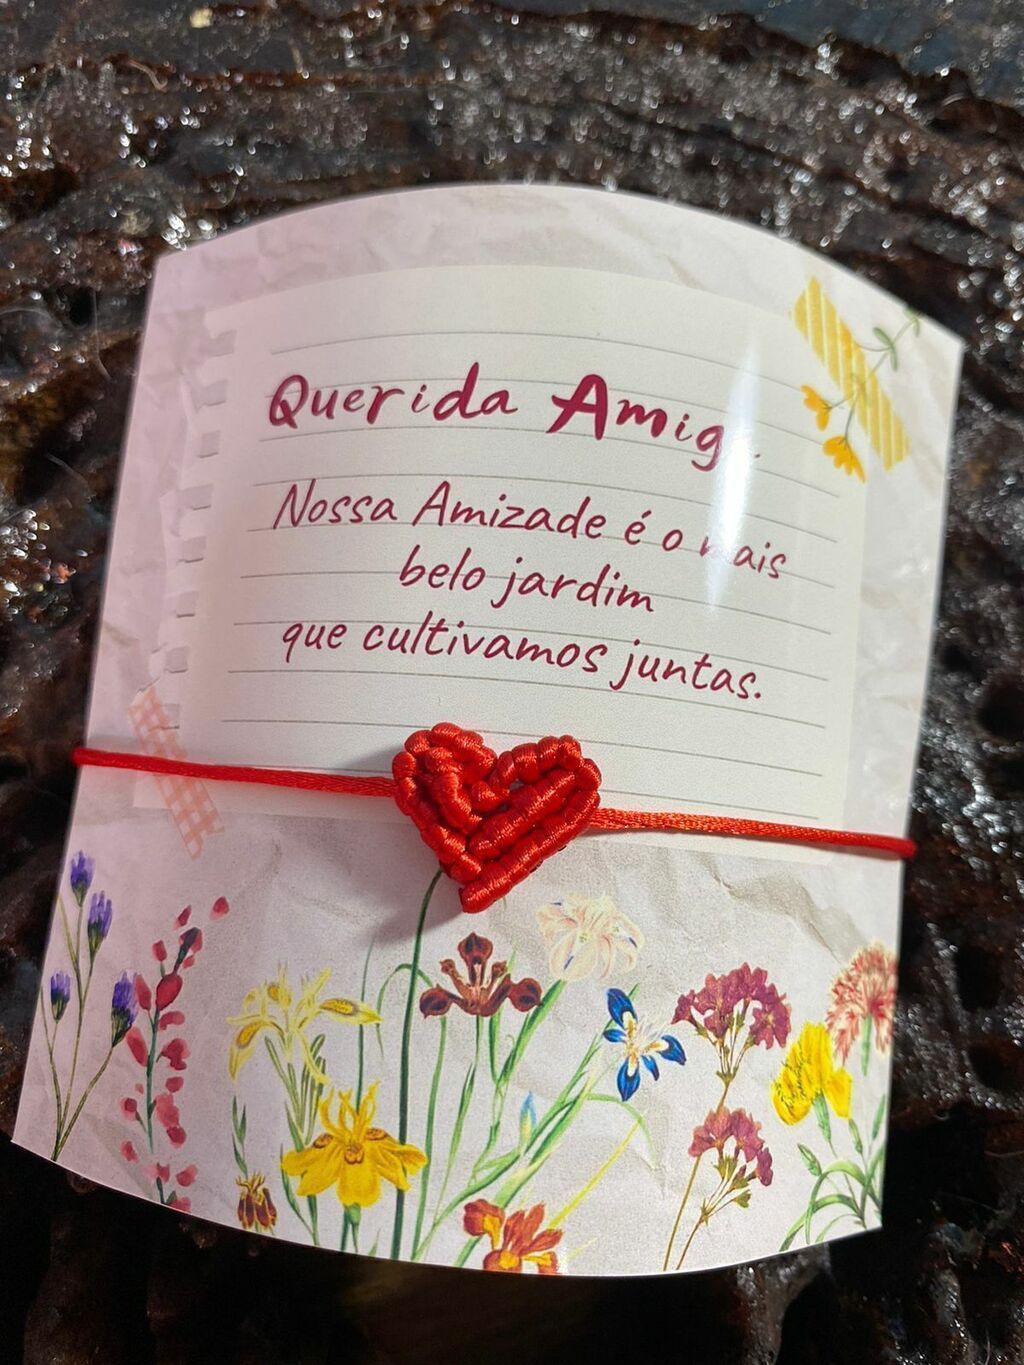 Querida Amiga
Nossa Amizade é o mais
belo jardim
que cultivamos juntas.